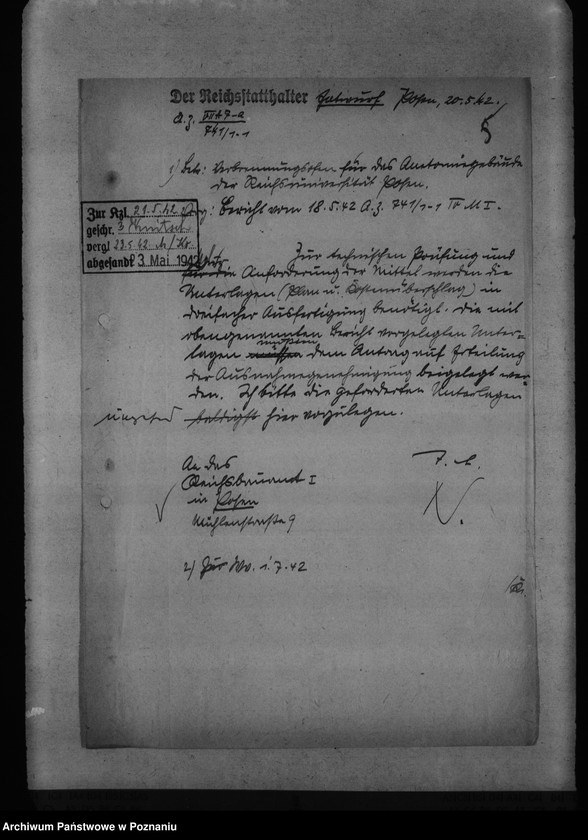 Der Reichsstatthalter Entwurf Posen, 20.5.42.
A.Z. III A 7-a
741/1-1
5
1) Betr: Verbrennungsofen für das Anatomiegebäude
der Reichsuniversität Posen.
Bericht vom 18.5.42 A.Z. 741/1-1 IV M I.
Zur Kzl. 21.5.42
geschr.
vergl 23.5.42
abgesandt 3. Mai 1942
Zur technischen Prüfung und
Anforderung der Mittel werden die
Unterlagen (Plan u. Kostenüberschlag) in
dreifacher Ausfertigung benötigt. Die mit
obengenannten Bericht vorgelegten Unter-
mussten
lagen müssen dem Antrag auf Erteilung
der Ausnahmegenehmigung beigelegt wer-
den. Ich bitte die geforderten Unterlagen
umgehend hier vorzulegen.
An das
Reichsbauamt I
in Posen
Mühlenstraße 9
2) Zur Wv. 1.7.42
Archiwum Państwowe w Poznaniu